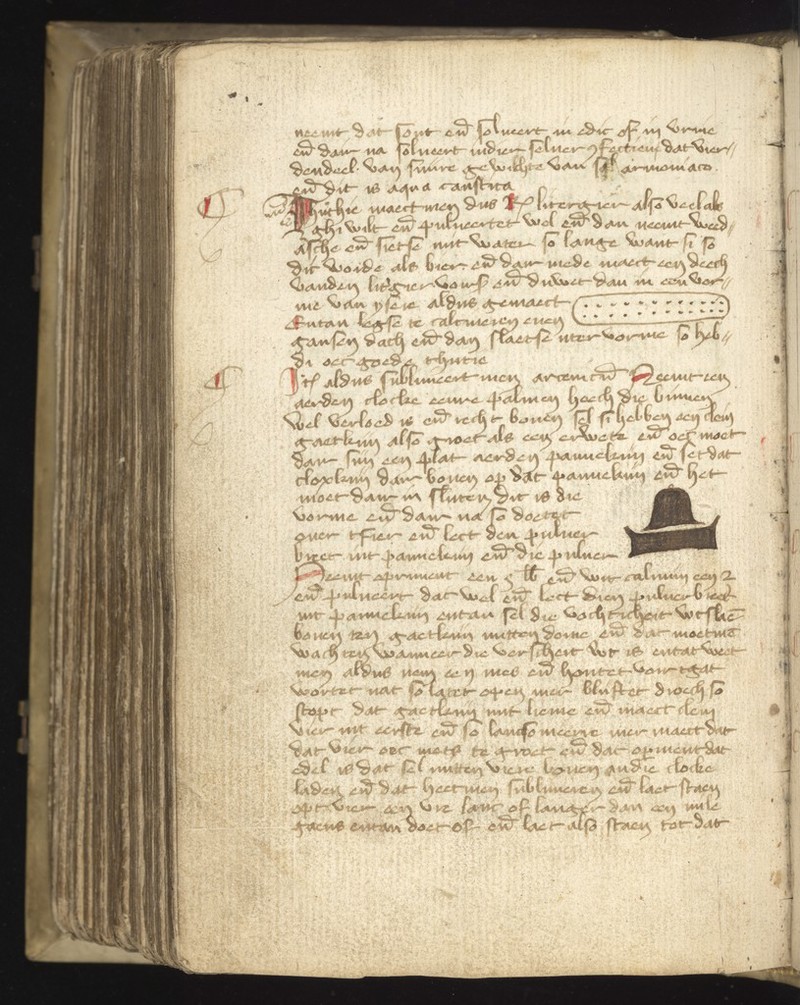 neemt dat sout en̄ solveert in edic of in vrine
en̄ dair na solveert in dier selver ꝯfectien dat vier〃
dendeel van sinre gewichte van sal armoniaco.
en̄ dit is aqua caustica
Thuthie maect men dus Rͯ litergier also veel als
ghi wilt en̄ pulveertet wel en̄ dan neemt weed〃
assche en̄ sietse mit water so lange want si so
dic worde als bier en̄ dair mede maect een deech
vanden litgier vors̄ en̄ duwet dan in een vor〃
me van ysere aldus gemaect
Entan legse te calcineren enen
gansen dach en̄ dan slaetse uter vorme so heb〃
di oec goede thutie
It̄ aldus sublimeert men arcenicū Neemt een
aerden clocke eenre palmen hoech die binnen
wel verloed is en̄ recht boven sel si hebben een clein
gaetkijn also groet als een erwete en̄ oec moet
dair sijn een plat aerden pannekijn en̄ set dat
cloxkijn dair boven op dat pannekijn en̄ het
moet dair in sluten dit is die
vorme en̄ dair na so doetet
over tfier en̄ lect den pulver
int pannekijn en̄ die pulver
Neemt oprument een en̄ wit calmijn een
en̄ pulveert dat wel en̄ lect dien pulver
int pannekijn entan sel die vochticheit wtslaē
boven ten gaetkijn mitten dome en̄ dat moetmē
wachten wanneer die verscheit wt is entat weet
men aldus nem een mes en̄ houtet voir tgat
wortet nat so latet open mer bliftet droech so
stopt dat gaetkijn mit lieme en̄ maect clein
vier int eerste en̄ so lanc so meerre mer maect dat
dat vier oec niets te groet en̄ dat oprment dat
edel is dat sel mitten viere boven an die clocke
laden en̄ dat heetmen sublimeren en̄ laet staen
opt vier een vre lanc of langer dan een mile
gaens entan doet of en̄ laet also staen tot dat